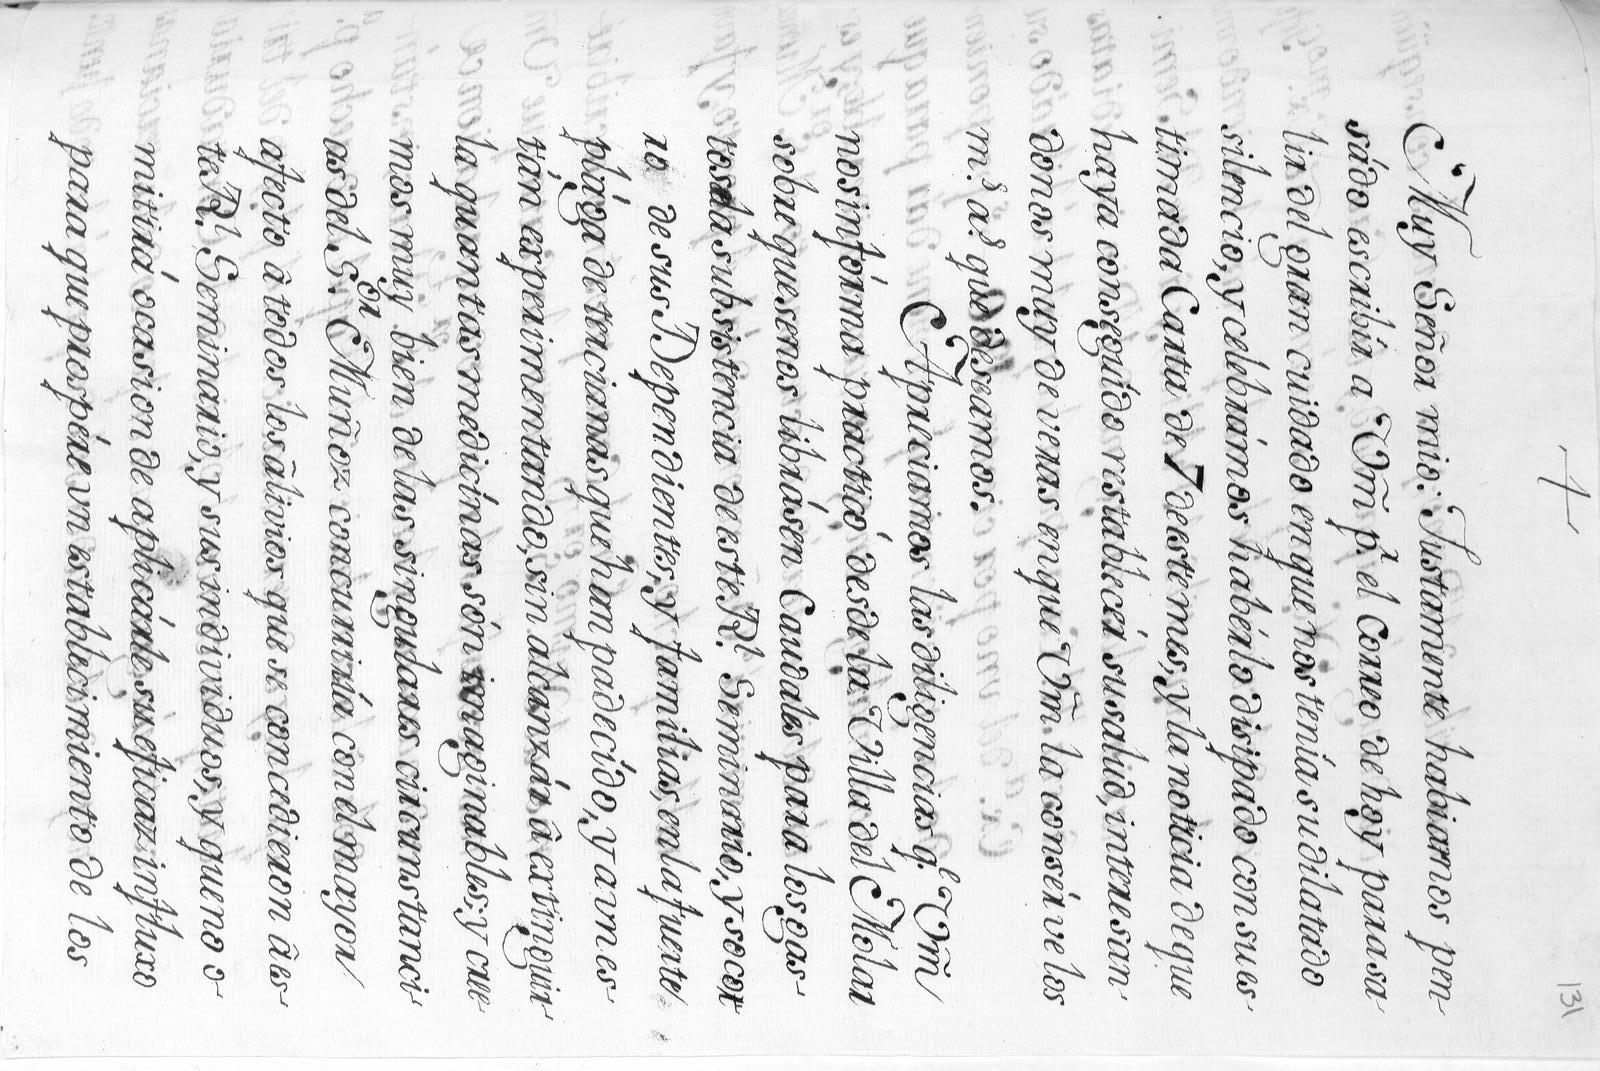 +
131
Muy Señor mio: Justamente habiamos pen-
sádo escribir a Vm̃ p.r el Correo de hoy para sa
lir del gran cuidado en que nos tenía su dilatado
silencio, y celebrámos habérlo disipado con su es-
timada Carta de 7 de este mes, y la noticia de que
haya conseguído restablecér su salud, interesan-
domos muy de veras en que Vm̃. la consérve los
m.s a.s que deseamos.
Apreciamos las diligencias q.e Vm̃
nos infórma practicó desde la Villa del Molar
sobre que se nos librásen Caudales para los gas-
tos de la subsistencia de este R.l Seminario, y socor
ro de sus Dependientes, y familias, en la fuerte
plága de tercianas que han padecído, y aun es-
tán experimentando, sin alcanzár â extinguir-
la quantas medicínas són imaginables, y cree
mos muy bien de las singulares circunstanci-
as del S.or Muñoz concurriría con el mayor
afecto â todos los âlivios que se concedieron â es-
te R.l Seminario, y sus individuos, y que no o-
mitirá ocasion de aplicárle su eficaz influxo
para que prospére un establecimiento de los